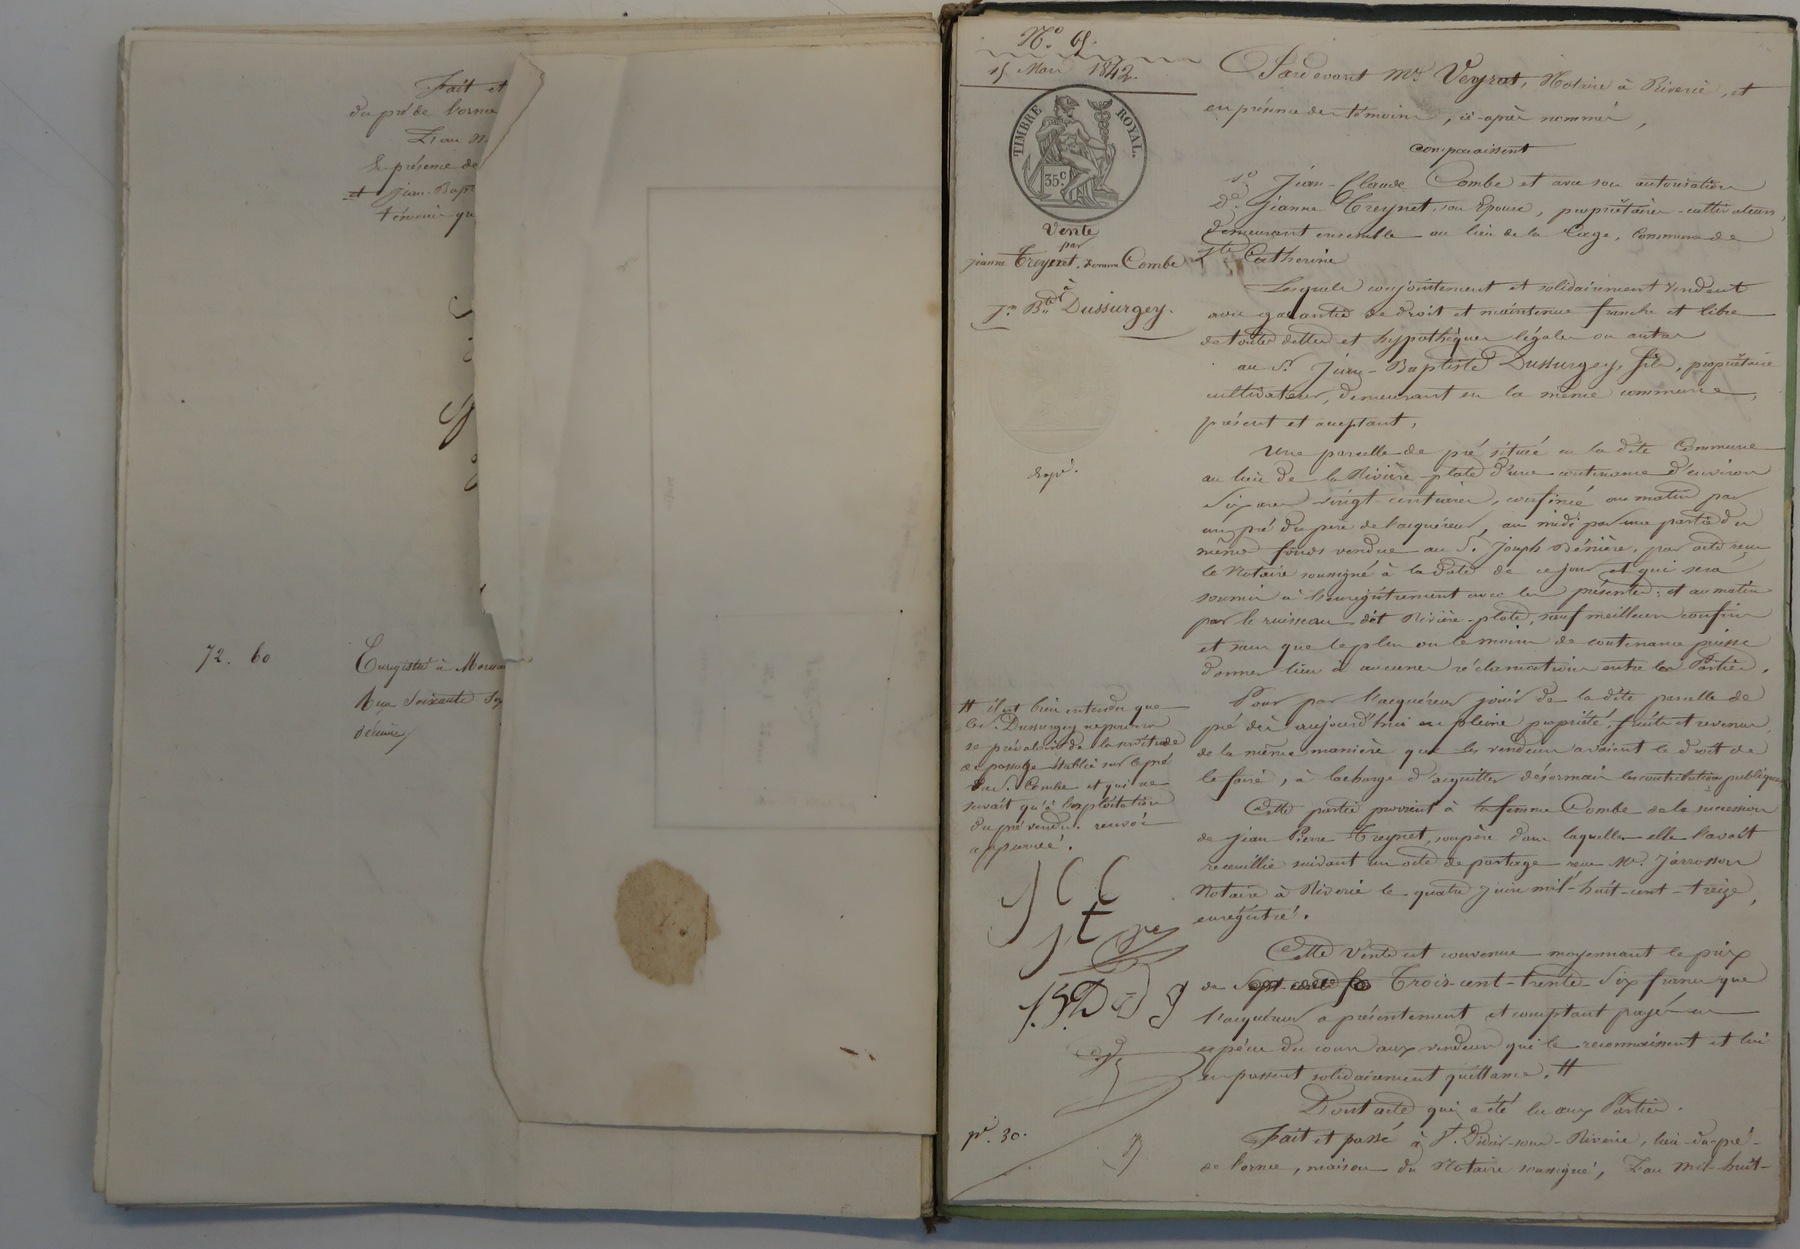 Fait et
du pré de lorme
L'an m
En présence de
et Jean-Bapt
témoins qu
72. 60
Enregistré à Morna
Reçu soixante
décime
N° 65.
15 Mars 1842.
TIMBRE ROYAL.
35 C.
Vente
par
Jeanne Treynet, femme Combe
à
Jn Bte Dussurgey.
Expé.
# il est bien entendu que
le S. Dussurgey ne pourra
se prévaloir de la servitude
de passage établie sur le pré
du S. Combe et qui ne
servait qu'à l'exploitation
du pré vendu. renvoi
approuvé.
J C C
J t
J. B. D
pr. 30.
Pardevant Me Veyrat, Notaire à Riverie, et
en présence des témoins, ci-après nommés,
comparaissent
1° Jean-Claude Combe et avec son autorisation
De Jeanne Treynet, son Epouse, propriétaires-cultivateurs,
demeurant ensemble au lieu de la commune de
Ste Catherine
Lesquels conjointement et solidairement vendent
avec garantie de droit et maintenue franche et libre
de toutes dettes et hypothèques légales ou autres
au S. Jean-Baptiste Dussurgey, fils, propriétaire
cultivateur, demeurant en la même commune,
présent et acceptant,
Une parcelle de pré située en la dite Commune
au lieu de la Rivière-plate d'une contenance d'environ
Six ares vingt centiares, confinée au matin par
un pré du père de l'acquéreur, au midi par une partie du
même fonds vendue au S. Joseph par acte reçu
le Notaire soussigné à la date de ce jour et qui sera
soumis à l'enregistrement avec les présentes; et au matin
par le ruisseau dit Rivière-plate, sauf meilleurs confins
et sans que le plus ou le moins de contenance puisse
donner lieu à aucunes réclamations entre les Parties.
Pour par l'acquéreur jouir de la dite parcelle de
pré dès aujourd'hui en pleine propriété, fruits et revenus,
de la même manière que les vendeurs avaient le droit de
le faire, à la charge d'acquitter désormais les contributions publiques
Cette partie provient à la femme Combe de la succession
de Jean Pierre Treynet, son père dans laquelle elle l'avait
recueillie suivant un acte de partage reçu Me Jarrosson
Notaire à Riverie le quatre juin mil-huit-cent-treize,
enregistré.
Cette Vente est convenue moyennant le prix
de Trois-cent-trente-Six francs que
l'acquéreur a présentement et comptant payé en
espèces du cours aux vendeurs qui le reconnaissent et lui
en passent solidairement quittance. #
Dont acte qui a été lu aux Parties.
Fait et passé à St. Didier-sous-Riverie, lieu-du-pré-
de lorme, maison du Notaire soussigné, L'an mil-huit-